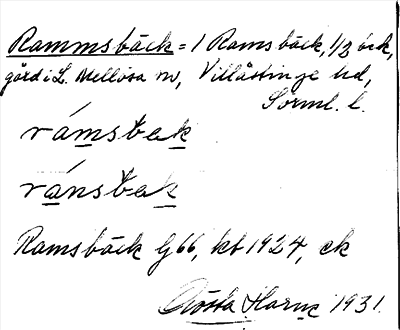 Rammsbäck = 1 Ramsbäck, 1/2 ock,
gård i L. Mellösa sn, Villåttinge hd,
Sörml. l.
rámsbak
ránsbak
Ramsbäck G 66, kb 1924, ek
Gösta Harne 1931.